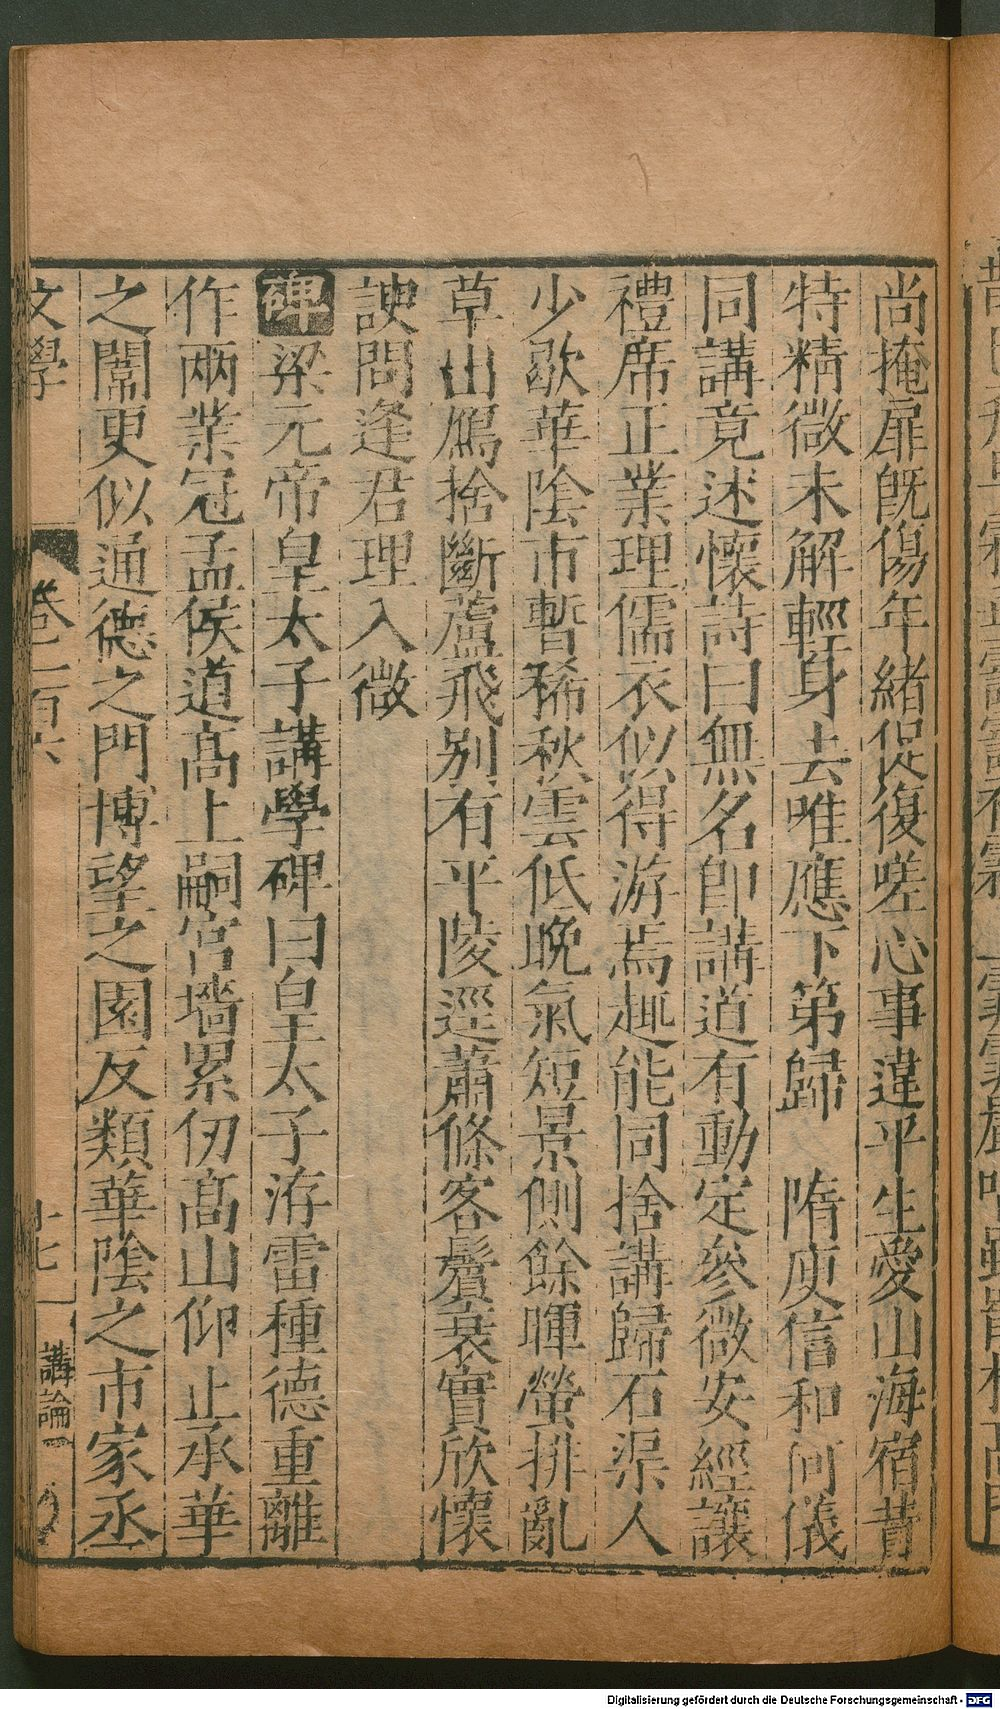 尚掩扉既傷年緒促復嗟心事違平生愛山海宿昔
特精微未解輕身去唯應下第歸 隋庾信和何儀
同講竟述懷詩曰無名即講道有動定參微安經讓
禮席正業理儒衣似得游焉趣能同捨講歸石渠人
少歇華陰市暫稀秋雲低晚氣短景側餘暉螢排亂
草出鴈捨斷蘆飛別有平陵逕蕭條客鬢衰實欣懷
諛問逢君理入微
碑梁元帝皇太子講學碑曰皇太子洊雷種德重離
作兩業冠孟侯道高上嗣宮墻累仞高山仰止承華
之闈更似通德之門博望之園反類華陰之市家丞
文學 卷二百六 十七 講論一
Digitalisierung gefördert durch die Deutsche Forschungsgemeinschaft - DFG